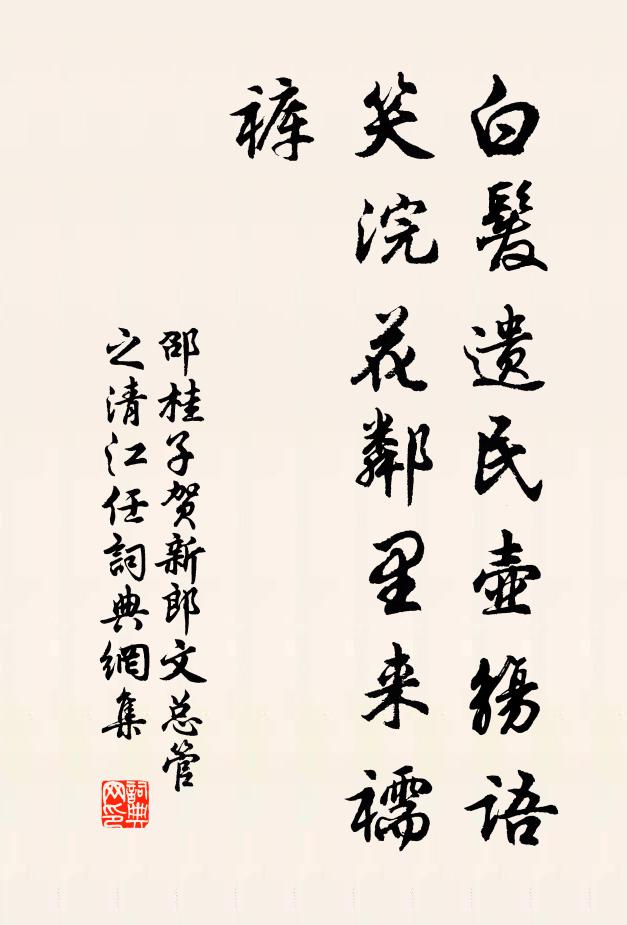 白髮遗民壺觴語
笑浣花鄰里来襦
裤
邵桂子贺新郎文总管
之清江任詞典網集
詞典
网印